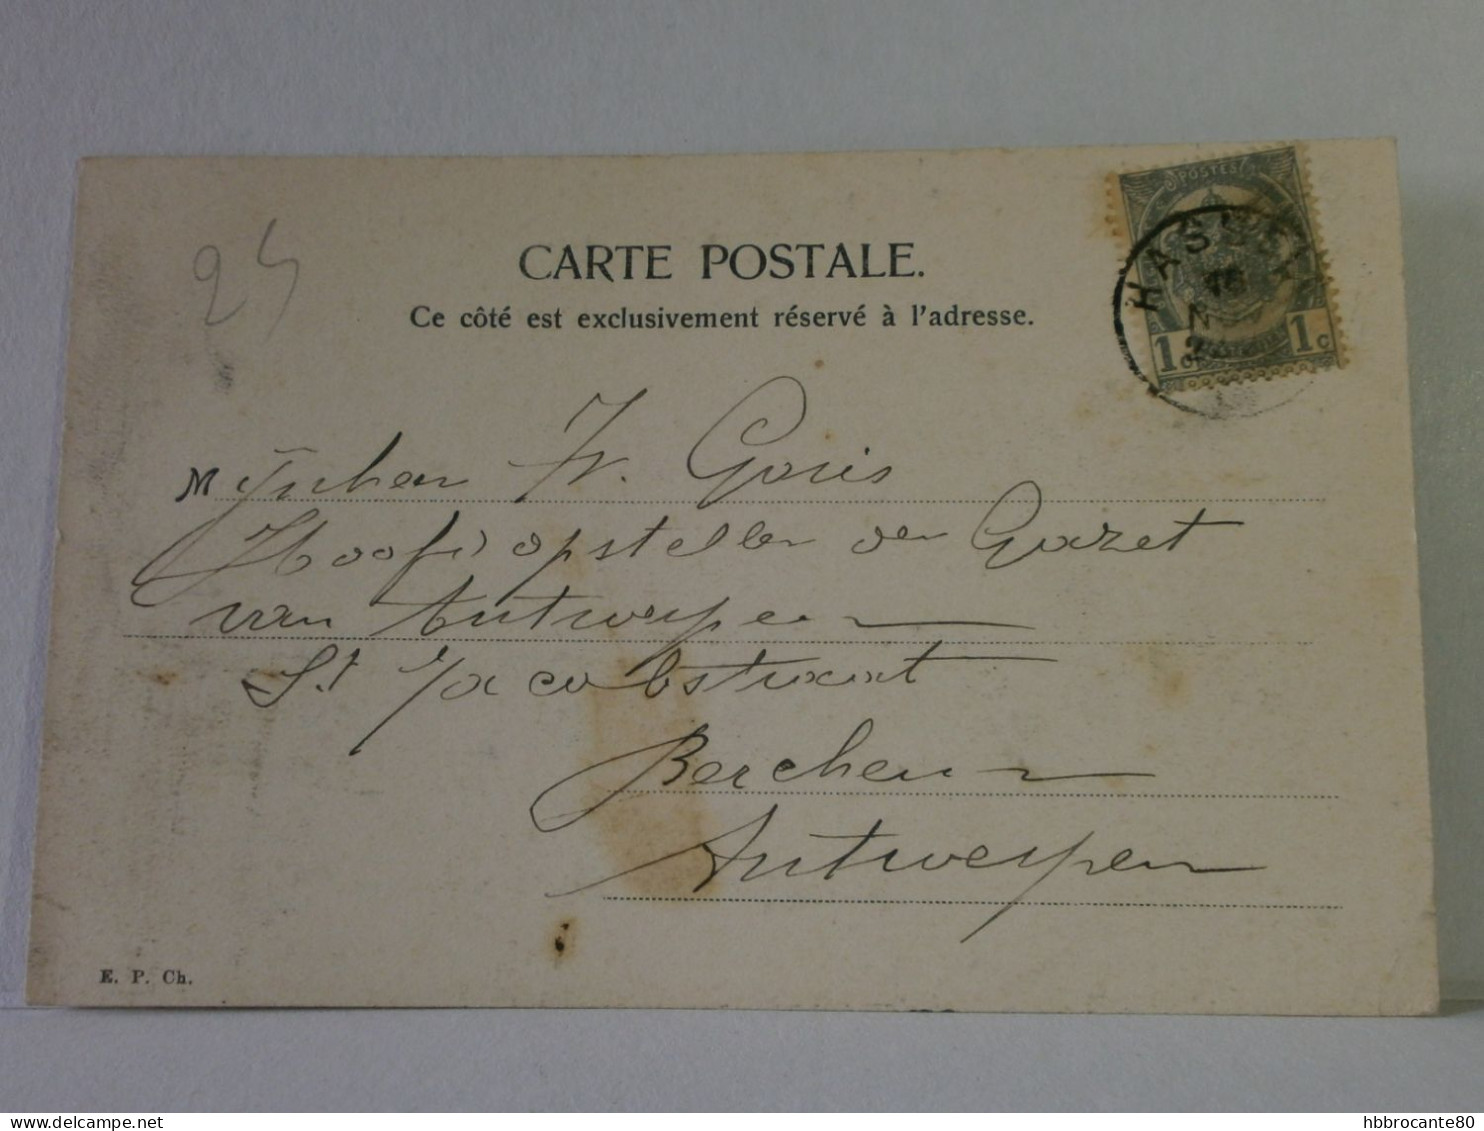 24
CARTE POSTALE.
Ce côté est exclusivement réservé à l'adresse.
POSTES
HASSELT
1 c 1 c
M Fr. Goris
Hoofdopsteller der Gazet
van Antwerpen
St Jacobstraat
Berchem
Antwerpen
E. P. Ch.
hbbrocante80